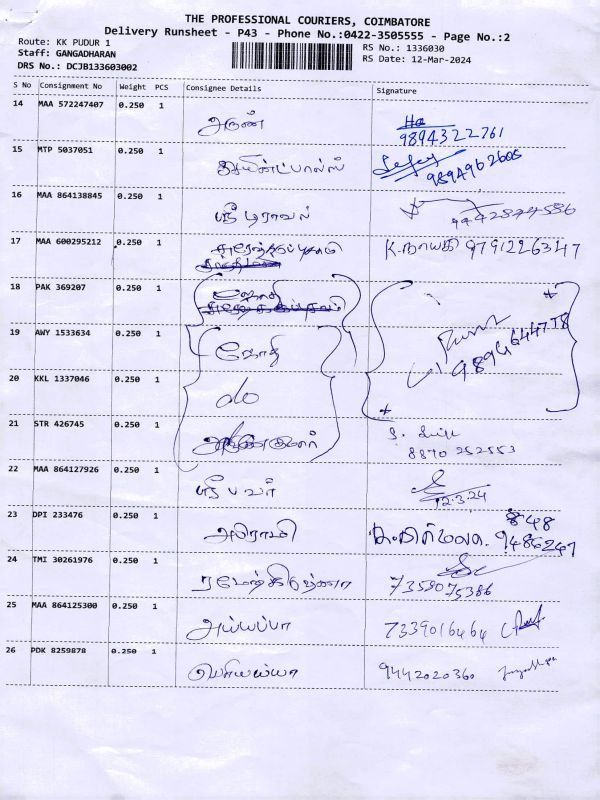 THE PROFESSIONAL COURIERS, COIMBATORE
Delivery Runsheet - P43 - Phone No.:0422-3505555 - Page No.:2
Route: KK PUDUR 1
Staff: GANGADHARAN
DRS No.: DCJB133603002
RS No.: 1336030
RS Date: 12-Mar-2024
S No Consignment No Weight PCS Consignee Details Signature
14 MAA 572247407 0.250 1 அருண்
9894322761
15 MTP 5037051 0.250 1
9894962605
16 MAA 864138845 0.250 1 ஸ்ரீ டிராவல்
17 MAA 600295212 0.250 1 9791226347
18 PAK 369207 0.250 1
19 AWY 1533634 0.250 1 ஜோதி
20 KKL 1337046 0.250 1 do
21 STR 426745 0.250 1
8870 252553
22 MAA 864127926 0.250 1 ஸ்ரீ பவர்
12.3.24
23 DPI 233476 0.250 1 அபிராமி
24 TMI 30261976 0.250 1 ரமேஷ்கிருஷ்ணா 7358075386
25 MAA 864125300 0.250 1 அய்யப்பா 7339016464
26 PDK 8259878 0.250 1 பெரியய்யா 9442020360